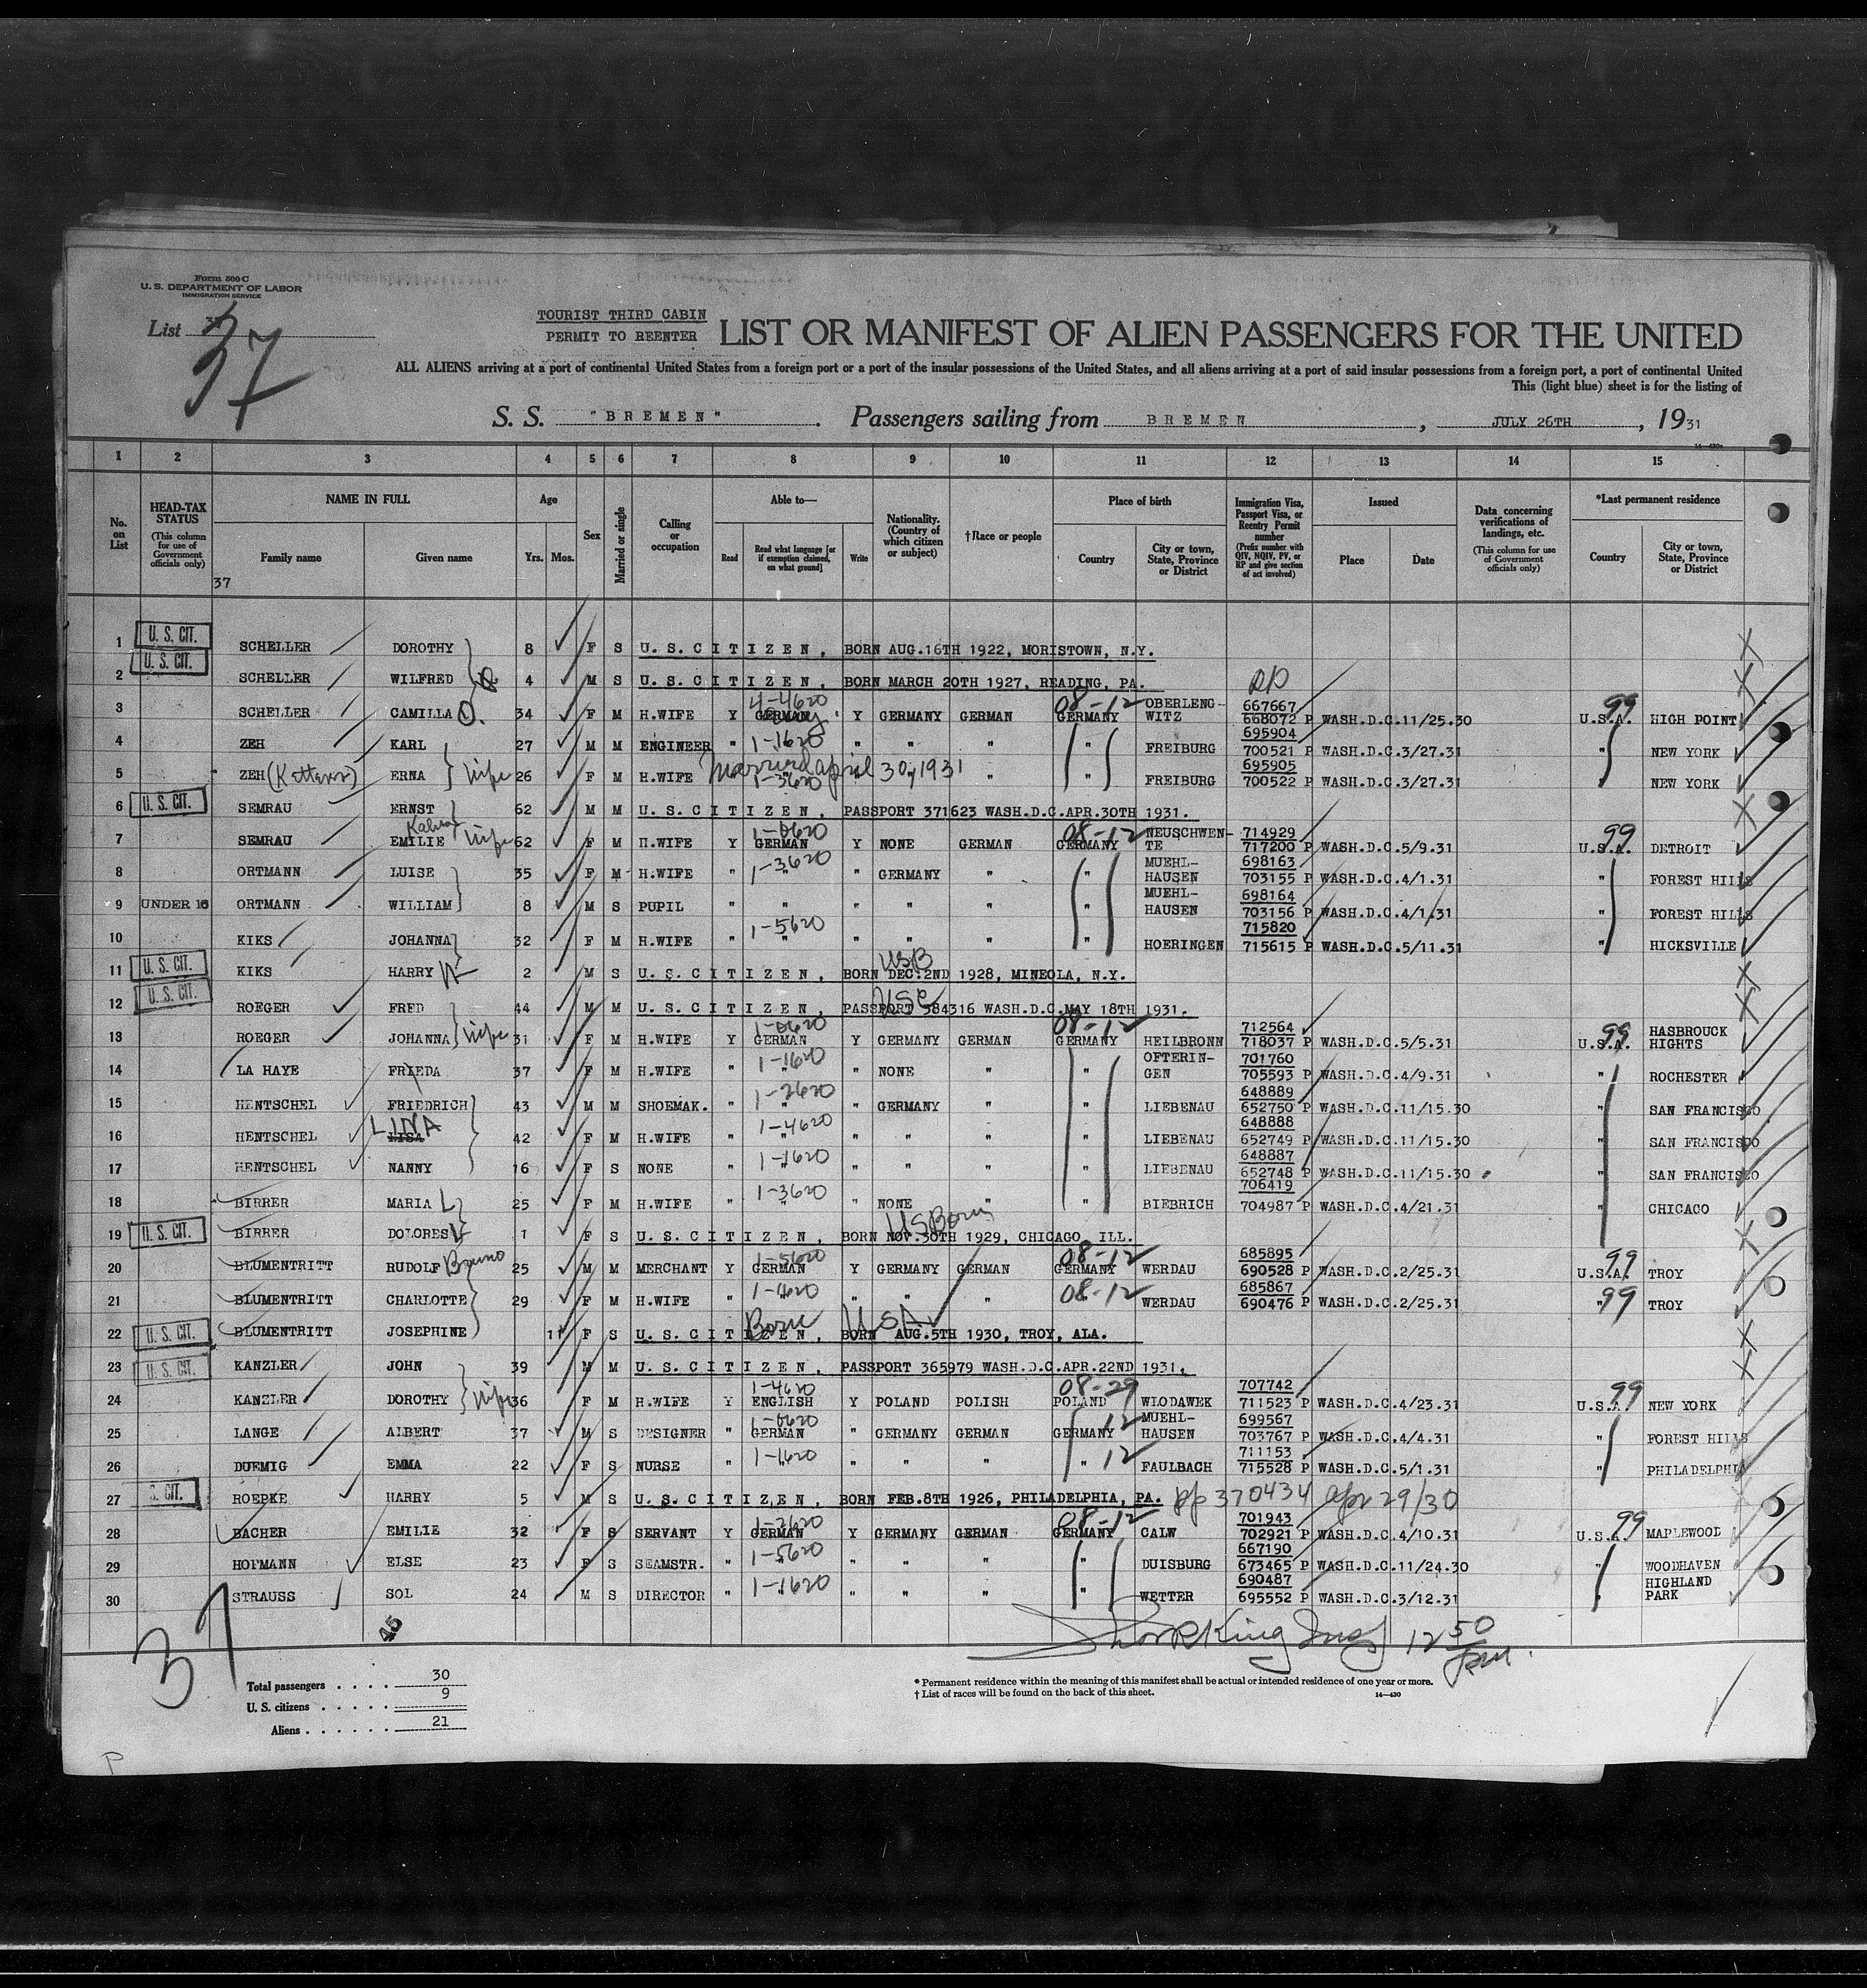 Form 500 C
U. S. DEPARTMENT OF LABOR
IMMIGRATION SERVICE
List 37
37
TOURIST THIRD CABIN
PERMIT TO REENTER
LIST OR MANIFEST OF ALIEN PASSENGERS FOR THE UNITED
ALL ALIENS arriving at a port of continental United States from a foreign port or a port of the insular possessions of the United States, and all aliens arriving at a port of said insular possessions from a foreign port, a port of continental United
This (light blue) sheet is for the listing of
S. S. "BREMEN". Passengers sailing from BREMEN, JULY 26TH, 1931
1 2 3 4 5 6 7 8 9 10 11 12 13 14 15
No. on List
HEAD-TAX STATUS (This column for use of Government officials only)
NAME IN FULL Family name Given name
37
Age Yrs. Mos.
Sex
Married or single
Calling or occupation
Able to— Read Read what language [or if exemption claimed, on what ground] Write
Nationality. (Country of which citizen or subject)
†Race or people
Place of birth Country City or town, State, Province or District
Immigration Visa, Passport Visa, or Reentry Permit number (Prefix number with QIV, NQIV, PV, or RP and give section of act involved)
Issued Place Date
Data concerning verifications of landings, etc. (This column for use of Government officials only)
*Last permanent residence Country City or town, State, Province or District
1 U. S. CIT. SCHELLER DOROTHY 8 F S U.S.CITIZEN, BORN AUG.16TH 1922, MORISTOWN, N.Y.
2 U. S. CIT. SCHELLER WILFRED 4 M S U.S.CITIZEN, BORN MARCH 20TH 1927, READING, PA. RP
3 SCHELLER CAMILLA O. 34 F M H.WIFE Y GERMAN 4-4620 Y GERMANY GERMAN 08-12 GERMANY OBERLENG-WITZ 667667 668072 P WASH.D.C.11/25.30 99 U.S.A. HIGH POINT
4 ZEH KARL 27 M M ENGINEER " 1-1620 " " " " FREIBURG 695904 700521 P WASH.D.C.3/27.31 " NEW YORK
5 ZEH ERNA wife 26 F M H.WIFE Married april 30, 1931 1-3620 " " FREIBURG 695905 700522 P WASH.D.C.3/27.31 " NEW YORK
6 U. S. CIT. SEMRAU ERNST 62 M M U.S.CITIZEN, PASSPORT 371623 WASH.D.C.APR.30TH 1931.
7 SEMRAU EMILIE wife 62 F M H.WIFE Y 1-0620 GERMAN Y NONE GERMAN 08-12 GERMANY NEUSCHWEN-TE 714929 717200 P WASH.D.C.5/9.31 99 U.S.A. DETROIT
8 ORTMANN LUISE 35 F M H.WIFE " 1-3620 " " GERMANY " " MUEHL-HAUSEN 698163 703155 P WASH.D.C.4/1.31 " FOREST HILLS
9 UNDER 16 ORTMANN WILLIAM 8 M S PUPIL " " " " " " MUEHL-HAUSEN 698164 703156 P WASH.D.C.4/1.31 " FOREST HILLS
10 KIKS JOHANNA 32 F M H.WIFE " 1-5620 " " " " " HOERINGEN 715820 715615 P WASH.D.C.5/11.31 " HICKSVILLE
11 U. S. CIT. KIKS HARRY 2 M S U.S.CITIZEN, BORN DEC.2ND 1928, MINEOLA, N.Y. USB
12 U. S. CIT. ROEGER FRED 44 M M U.S.CITIZEN, PASSPORT 384316 WASH.D.C.MAY 18TH 1931. USC
13 ROEGER JOHANNA wife 31 F M H.WIFE Y 1-0620 GERMAN Y GERMANY GERMAN 08-12 GERMANY HEILBRONN 712564 718037 P WASH.D.C.5/5.31 99 U.S.A. HASBROUCK HIGHTS
14 LA HAYE FRIEDA 37 F M H.WIFE " 1-1620 " " NONE " " OFTERIN-GEN 701760 705593 P WASH.D.C.4/9.31 " ROCHESTER
15 HENTSCHEL FRIEDRICH 43 M M SHOEMAK. " 1-2620 " " GERMANY " " LIEBENAU 648889 652750 P WASH.D.C.11/15.30 " SAN FRANCISCO
16 HENTSCHEL LINA 42 F M H.WIFE " 1-4620 " " " " " LIEBENAU 648888 652749 P WASH.D.C.11/15.30 " SAN FRANCISCO
17 HENTSCHEL NANNY 16 F S NONE " 1-1620 " " " " " LIEBENAU 648887 652748 P WASH.D.C.11/15.30 " SAN FRANCISCO
18 BIRRER MARIA L 25 F M H.WIFE " 1-3620 " " NONE " " BIEBRICH 706419 704987 P WASH.D.C.4/21.31 " CHICAGO
19 U. S. CIT. BIRRER DOLORES 1 F S U.S.CITIZEN, BORN NOV.30TH 1929, CHICAGO, ILL. US Born
20 BLUMENTRITT RUDOLF Bruno 25 M M MERCHANT Y 1-5620 GERMAN Y GERMANY GERMAN 08-12 GERMANY WERDAU 685895 690528 P WASH.D.C.2/25.31 99 U.S.A. TROY
21 BLUMENTRITT CHARLOTTE 29 F M H.WIFE " 1-4620 " " " " 08-12 " WERDAU 685867 690476 P WASH.D.C.2/25.31 99 " TROY
22 U. S. CIT. BLUMENTRITT JOSEPHINE 11 F S U.S.CITIZEN, BORN AUG.5TH 1930, TROY, ALA. Born USA
23 U. S. CIT. KANZLER JOHN 39 M M U.S.CITIZEN, PASSPORT 365979 WASH.D.C.APR.22ND 1931.
24 KANZLER DOROTHY wife 36 F M H.WIFE Y 1-4620 ENGLISH Y POLAND POLISH 08-29 POLAND WLODAWEK 707742 711523 P WASH.D.C.4/23.31 99 U.S.A. NEW YORK
25 LANGE ALBERT 37 M S DESIGNER " 1-0620 GERMAN " GERMANY GERMAN 12 GERMANY MUEHL-HAUSEN 699567 703767 P WASH.D.C.4/4.31 " FOREST HILLS
26 DUEMIG EMMA 22 F S NURSE " 1-1620 " " " " " 12 FAULBACH 711153 715528 P WASH.D.C.5/1.31 " PHILADELPHIA
27 S. CIT. ROEPKE HARRY 5 M S U.S.CITIZEN, BORN FEB.8TH 1926, PHILADELPHIA, PA. pp 370434 apr 29/30
28 BACHER EMILIE 32 F S SERVANT Y 1-2620 GERMAN Y GERMANY GERMAN 08-12 GERMANY CALW 701943 702921 P WASH.D.C.4/10.31 99 U.S.A. MAPLEWOOD
29 HOFMANN ELSE 23 F S SEAMSTR. " 1-5620 " " " " " DUISBURG 667190 673465 P WASH.D.C.11/24.30 " WOODHAVEN
30 STRAUSS SOL 24 M S DIRECTOR " 1-1620 " " " " " WETTER 690487 695552 P WASH.D.C.3/12.31 " HIGHLAND PARK
37 45 12 50 pm.
Total passengers . . . . 30
U. S. citizens . . . . . 9
Aliens . . . . . . 21
* Permanent residence within the meaning of this manifest shall be actual or intended residence of one year or more.
† List of races will be found on the back of this sheet. 14—430
P